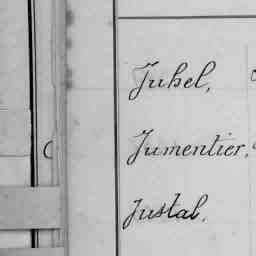 Juhel,
Jumentier,
Justal,